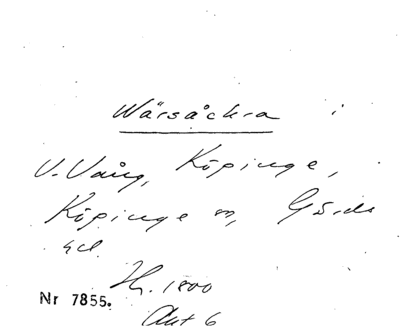 Wärsåckra i
V. Vång, Köpinge,
Köpinge sn, Gärds
hd.
Hr. 1800
Nr 7855.
Akt 6